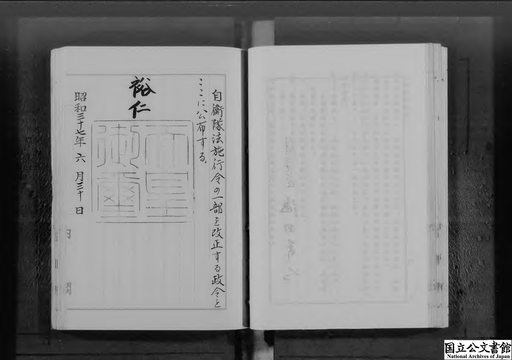 自衛隊法施行令の一部を改正する政令を
ここに公布する。
裕仁
天皇
御璽
昭和三十七年六月三十日
国立公文書館
National Archives of Japan